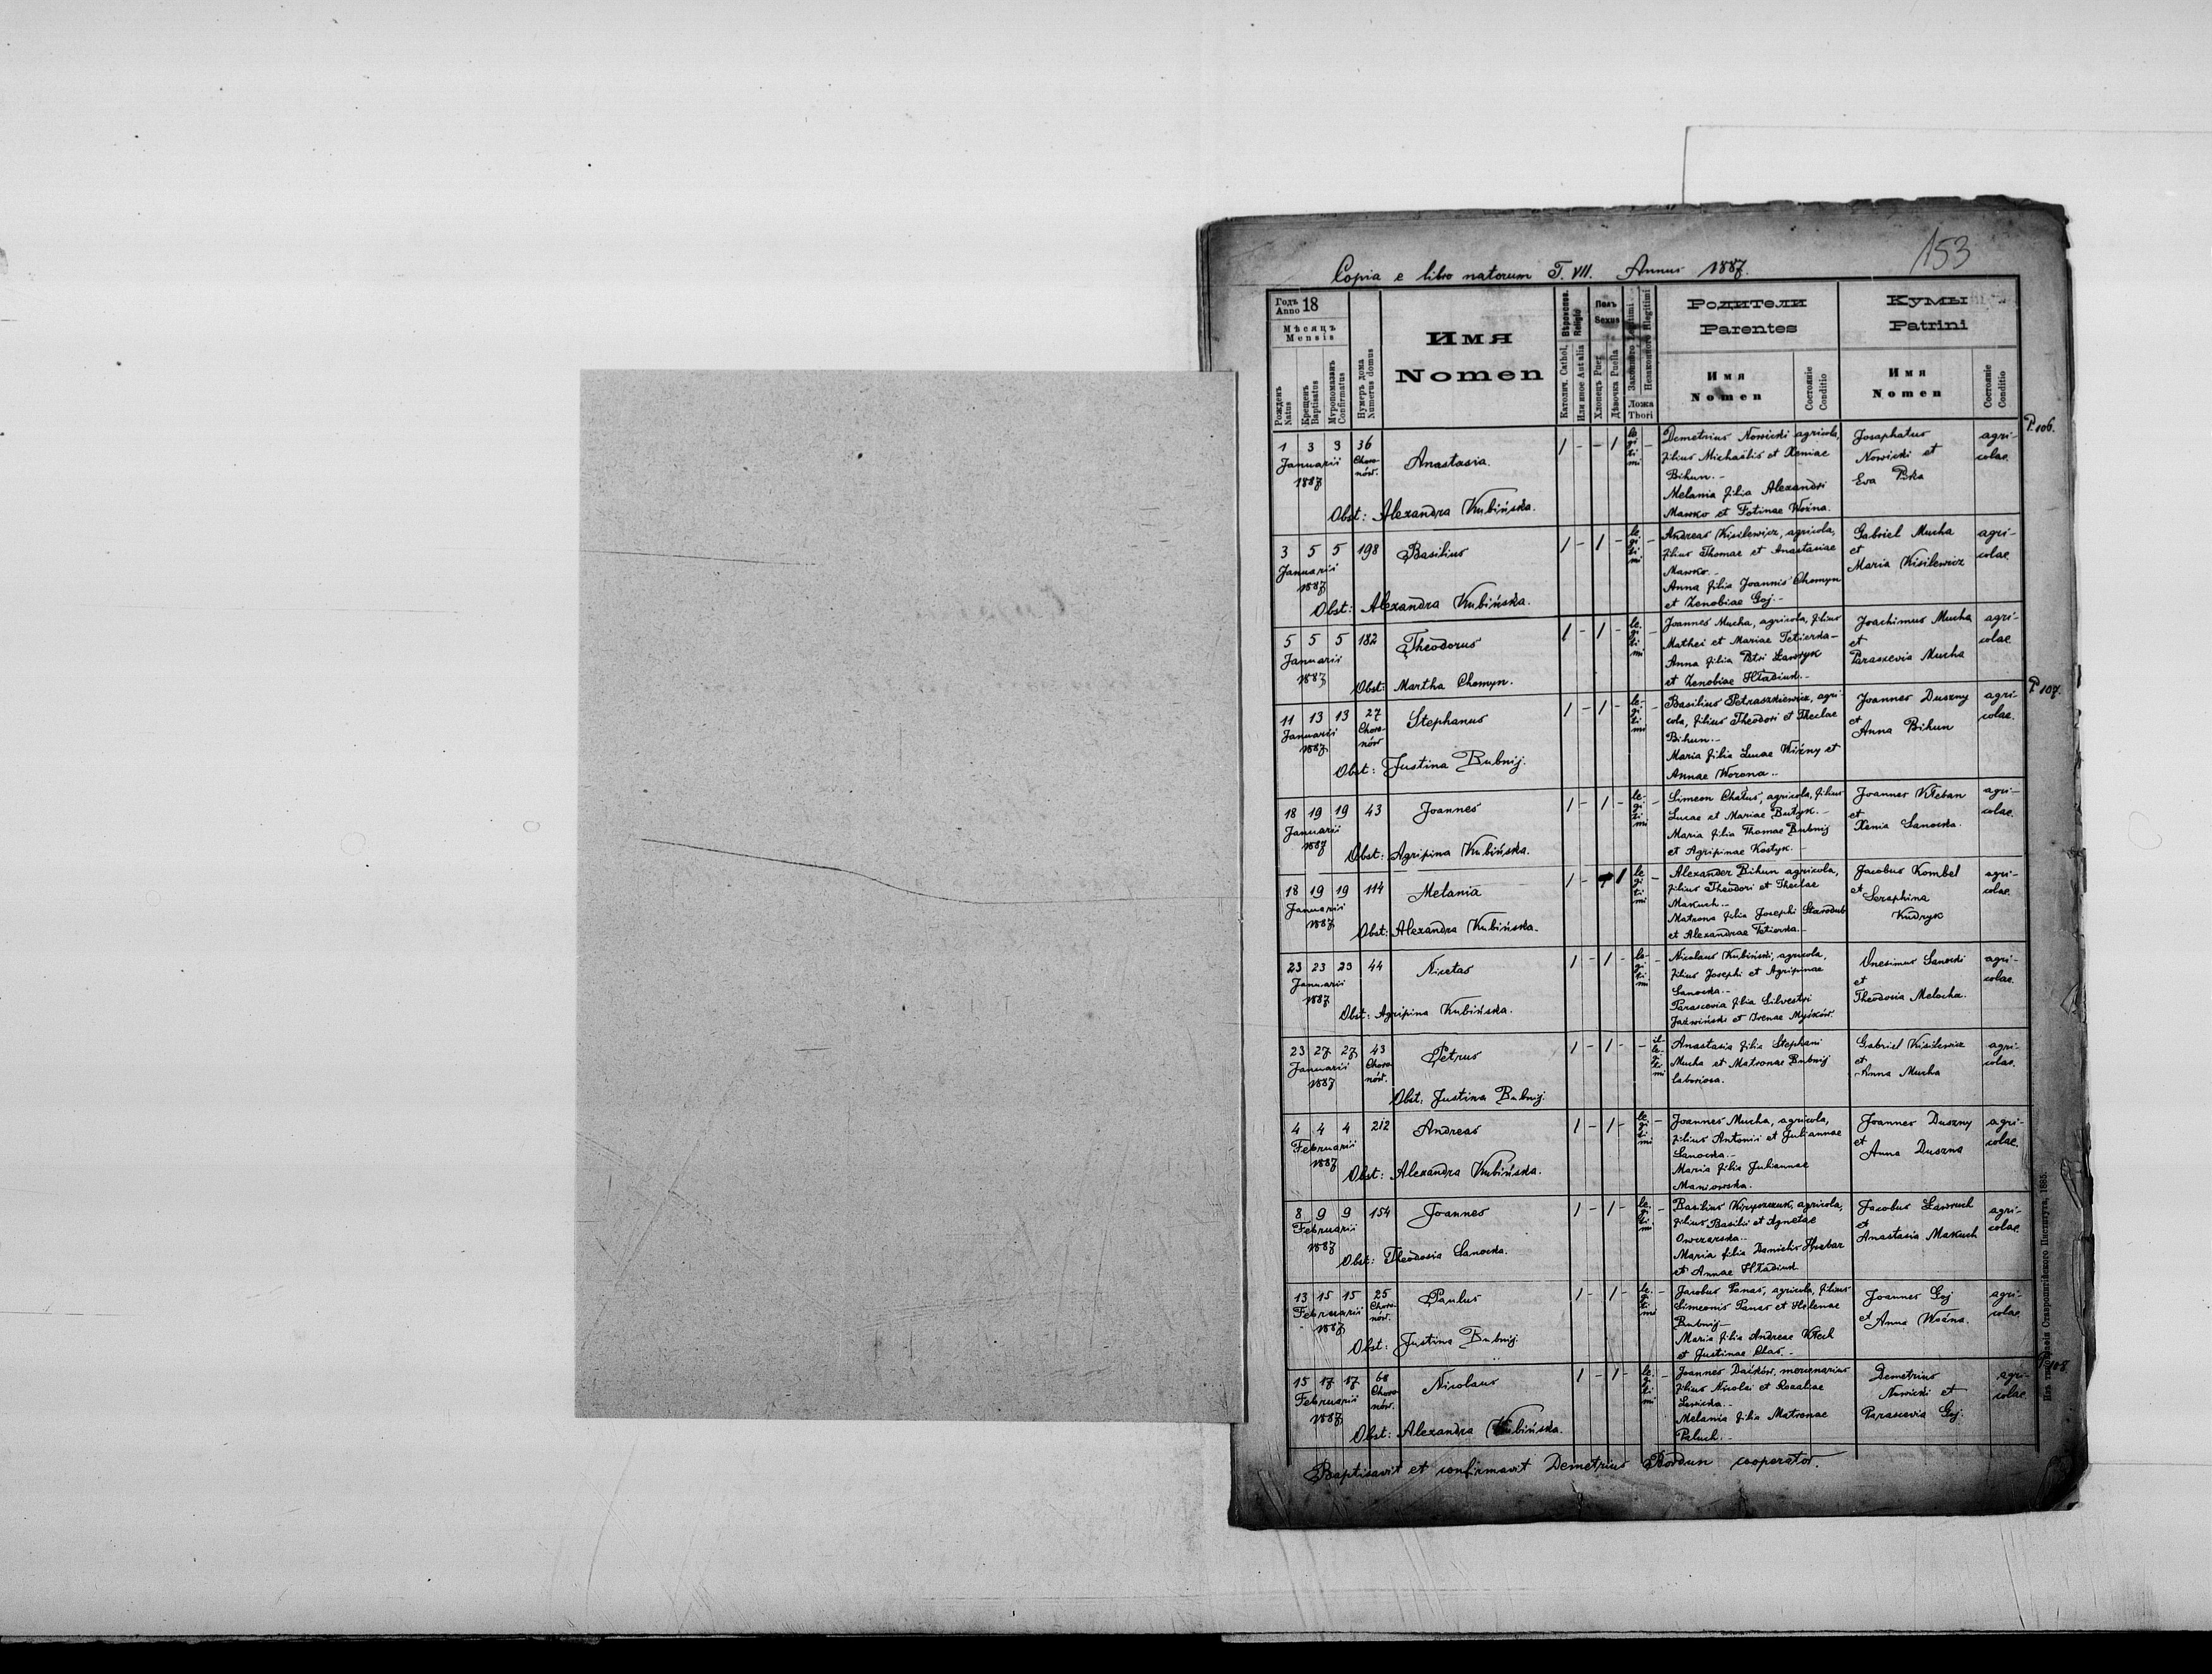 153
Copia e libro natorum T. VII. Annus 1887.
Годъ Anno 18
Мѣсяцъ Mensis
Рожденъ Natus
Крещенъ Baptisatus
Мѵропомазанъ Confirmatus
Нумеръ дома Numerus domus
Имя
Nomen
Вѣроиспов. Religio
Католич. Cathol.
Или иное Aut alia
Полъ Sexus
Хлопецъ Puer
Дѣвочка Puella
Законного Legitimi
Незаконного Illegitimi
Ложа Thori
Родители
Parentes
Имя Nomen
Состояніе Conditio
Кумы
Patrini
Имя Nomen
Состояніе Conditio
P. 106.
1 3 3 36 Januarii 1887 Choronów.
Anastasia.
Obst: Alexandra Kubińska.
1 - - 1 legitimi -
Demetrius Nowicki agricola,
filius Michaëlis et Xeniae
Bihun.-
Melania filia Alexandri
Mawko et Fotinae Woźna.
Josaphatus
Nowicki et
Eva
agricolae.
3 5 5 198 Januarii 1887
Basilius
Obst: Alexandra Kubińska.
1 - 1 - legitimi -
Andreas Kisilewicz, agricola,
filius Thomae et Anastasiae
Mawko.-
Anna filia Joannis Chomyn
et Zenobiae Goj.-
Gabriel Mucha
et
Maria Kisilewicz
agricolae.
5 5 5 182 Januarii 1887
Theodorus
Obst: Martha Chomyn.
1 - 1 - legitimi -
Joannes Mucha, agricola, filius
Mathei et Mariae Tetierka-
Anna filia Petri Ławryk
et Zenobiae Hładiuk.-
Joachimus Mucha
et
Parascevia Mucha
agricolae.
P. 107.
11 13 13 27 Januarii 1887 Choronów
Stephanus
Obst: Justina Bubnij.
1 - 1 - legitimi -
Basilius Petraszkiewicz, agri-
cola, filius Theodori et Theclae
Bihun.-
Maria filia Lucae Woźny et
Annae Worona.-
Joannes Duszny
et
Anna Bihun
agricolae.
18 19 19 43 Januarii 1887
Joannes
Obst: Agripina Kubińska.
1 - 1 - legitimi -
Simeon Chatus, agricola, filius
Lucae et Mariae Butyk.-
Maria filia Thomae Bubnij
et Agripinae Kostyk.-
Joannes Kłeban
et
Xenia Sanocka.
agricolae.
18 19 19 114 Januarii 1887
Melania
Obst: Alexandra Kubińska.
1 - 1 legitimi -
Alexander Bihun agricola,
filius Theodori et Theclae
Makuch.-
Matrona filia Josephi Starodub
et Alexandrae Tetierka.-
Jacobus Kombel
et
Seraphina
Kudryk
agricolae.
23 23 23 44 Januarii 1887
Nicetas
Obst: Agripina Kubińska.
1 - 1 - legitimi -
Nicolaus Kubiński, agricola,
filius Josephi et Agripinae
Sanocka.-
Parascevia filia Silvestri
Jaźwiński et Irenae Myśków.
Onesimus Sanocki
et
Theodosia Melocha.
agricolae.
23 27 27 43 Januarii 1887 Choronów.
Petrus
Obst: Justina Bubnij.
1 - 1 - - illegitimi
Anastasia filia Stephani
Mucha et Matronae Bubnij
laboriosa.
Gabriel Kisilewicz
et
Anna Mucha
agricolae.
4 4 4 212 Februarii 1887
Andreas
Obst: Alexandra Kubińska.
1 - 1 - legitimi -
Joannes Mucha, agricola,
filius Antonii et Juliannae
Sanocka.-
Maria filia Juliannae
Maniowska.
Joannes Duszny
et
Anna Duszna
agricolae.
8 9 9 154 Februarii 1887
Joannes
Obst: Theodosia Sanocka.
1 - 1 - legitimi -
Basilius agricola,
filius Basilii et Agnetae
Owczarska.-
Maria filia Danielis
et Annae Hładiuk
Jacobus Ławruch
et
Anastasia Makuch
agricolae.
13 15 15 25 Februarii 1887 Choronów.
Paulus
Obst: Justina Bubnij
1 - 1 - legitimi -
Jacobus Panas, agricola, filius
Simeonis Panas et Helenae
Bubnij-
Maria filia Andreae
et Justinae
Joannes Goj
et Anna Woźna.
agricolae.
P. 108.
15 17 17 68 Februarii 1887 Choronów.
Nicolaus
Obst: Alexandra Kubińska.
1 - 1 - legitimi -
Joannes Daćków, mercenarius
filius Nicolai et Rosaliae
Lewicka.-
Melania filia Matronae
Paluch.-
Demetrius
Nowicki et
Parascevia Goj.
agricolae.
Baptisavit et confirmavit Demetrius Bordun cooperator.
Изъ типографіи Ставропигійского Института, 1885.